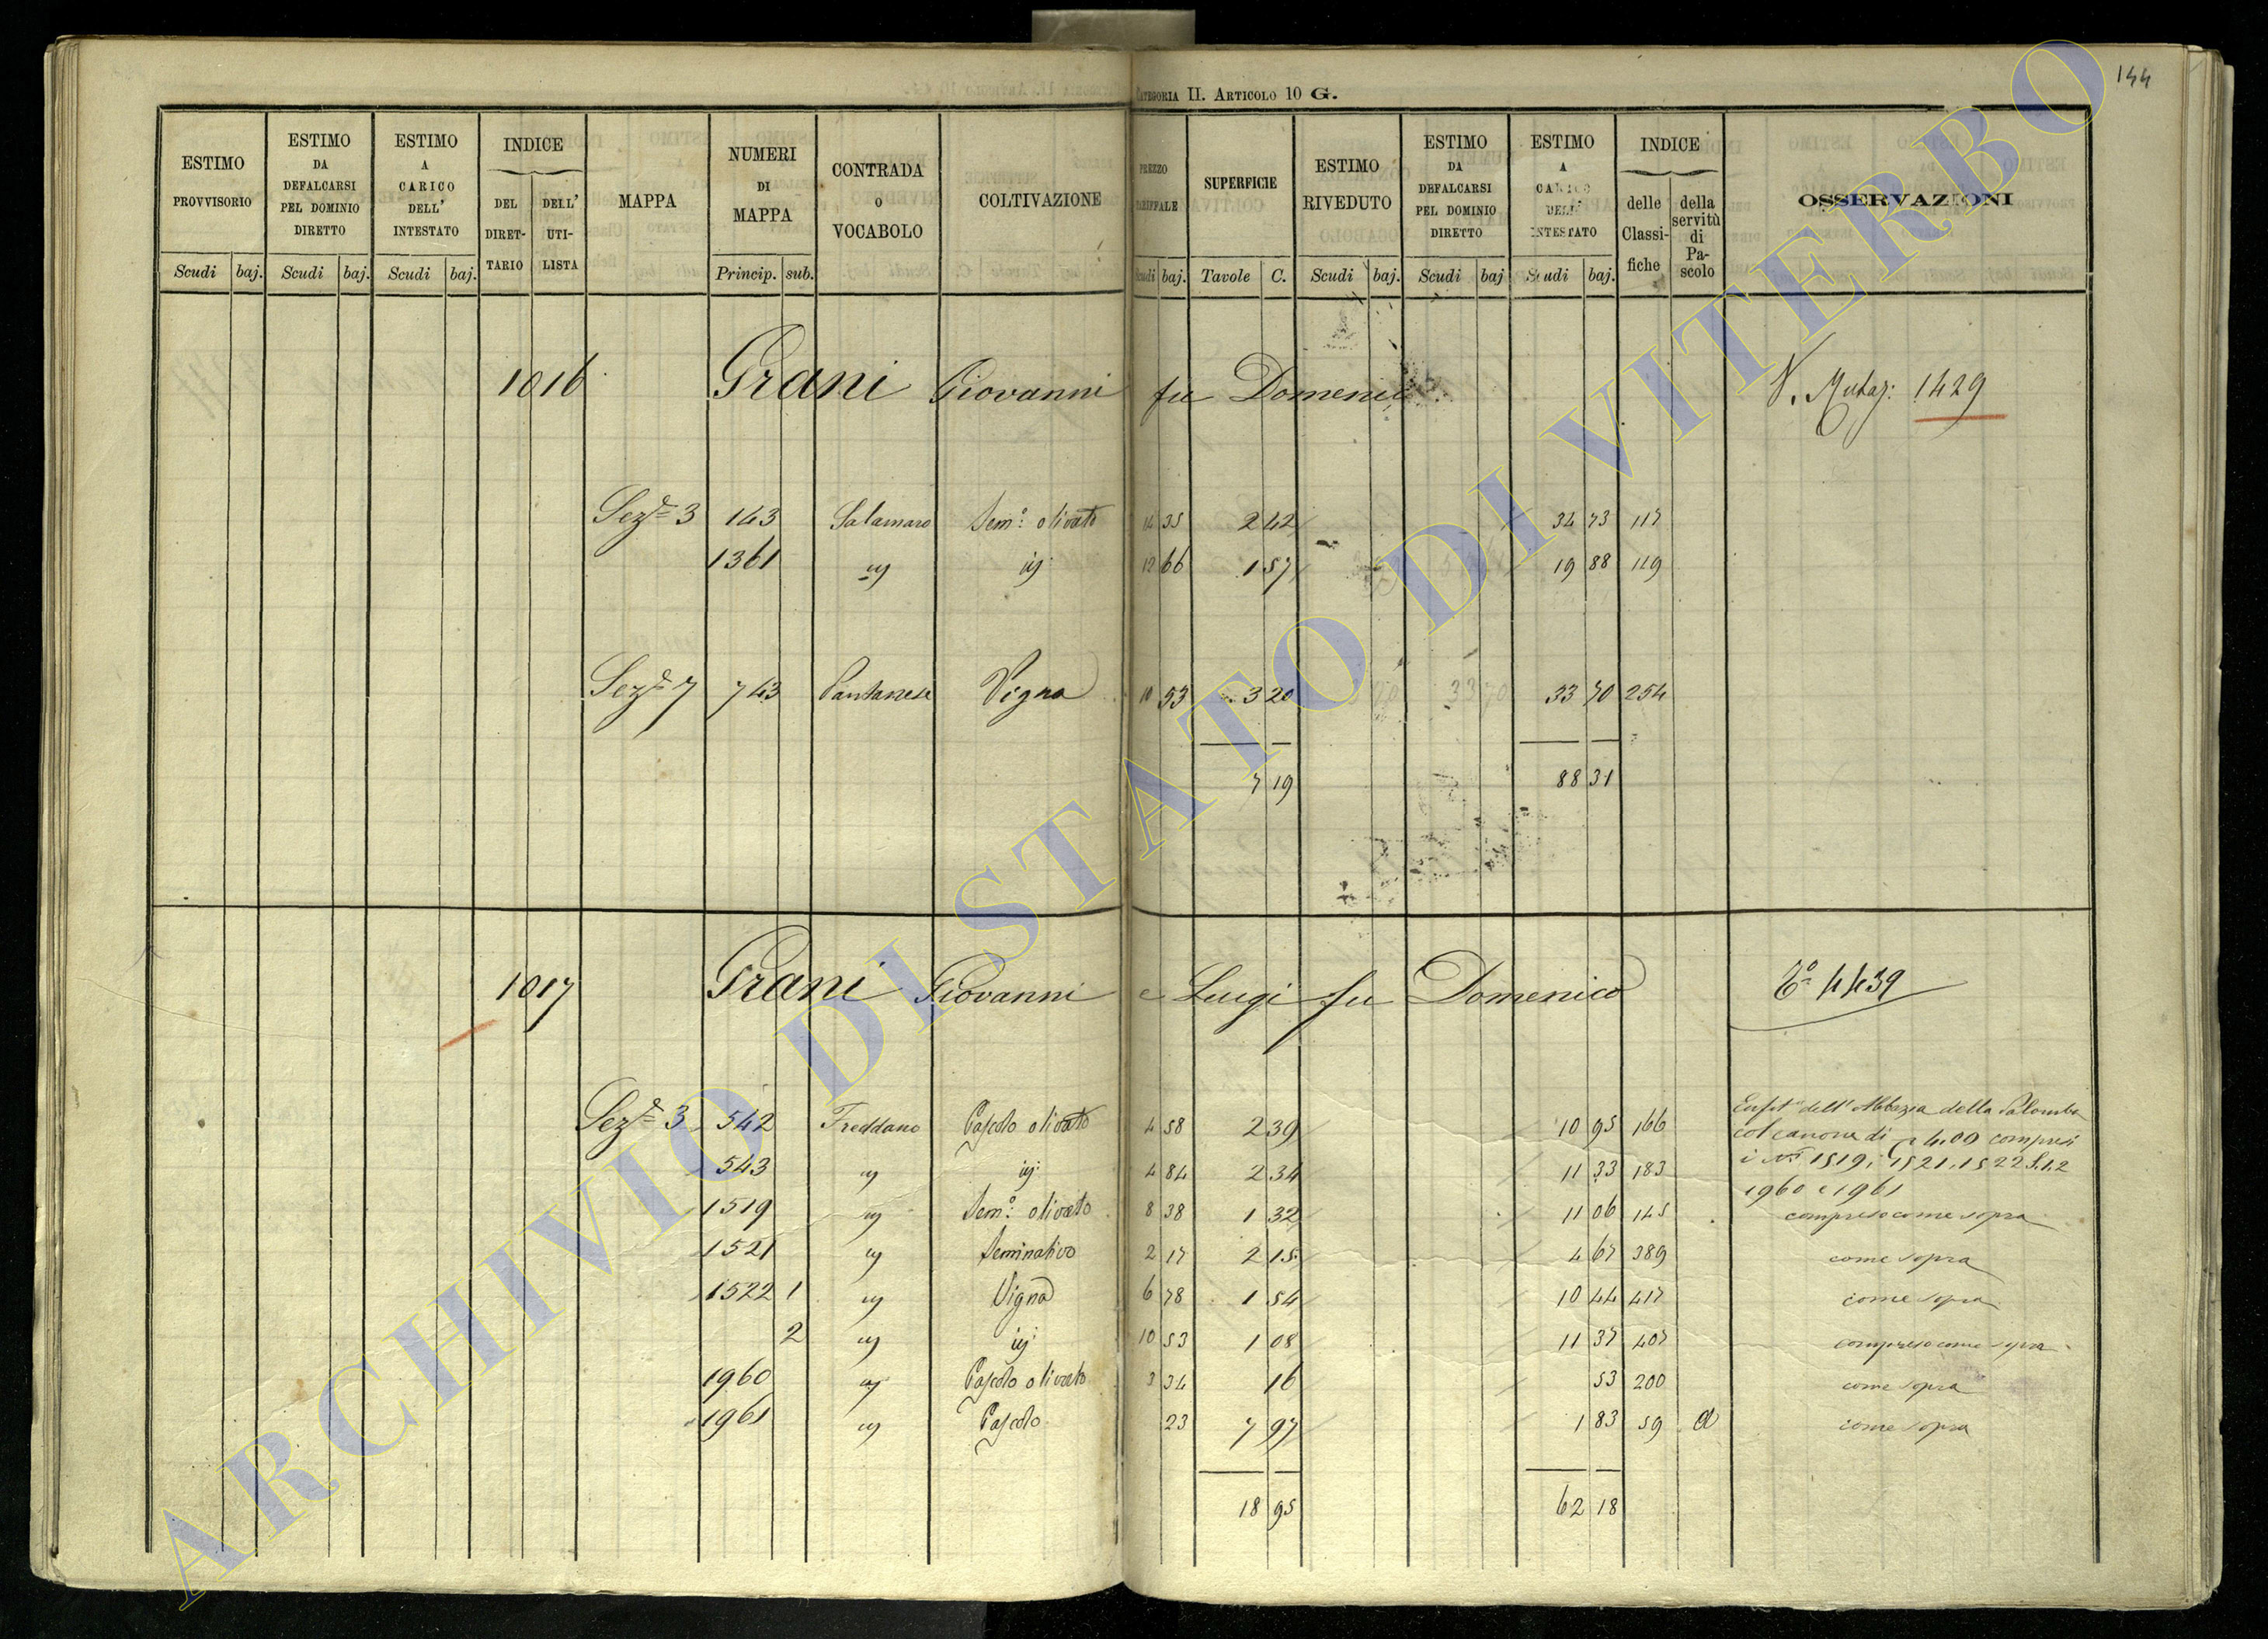 144
CATEGORIA II. ARTICOLO 10 G.
ESTIMO PROVVISORIO
ESTIMO DA DEFALCARSI PEL DOMINIO DIRETTO
ESTIMO A CARICO DELL' INTESTATO
INDICE
DEL DIRET-TARIO
DELL' UTI-LISTA
MAPPA
NUMERI DI MAPPA
CONTRADA O VOCABOLO
COLTIVAZIONE
PREZZO TARIFFALE
SUPERFICIE
ESTIMO RIVEDUTO
ESTIMO DA DEFALCARSI PEL DOMINIO DIRETTO
ESTIMO A CARICO DELL' INTESTATO
INDICE
delle Classi-fiche
della servitù di Pa-scolo
OSSERVAZIONI
Scudi baj. Scudi baj. Scudi baj. Princip. sub. Scudi baj. Tavole C. Scudi baj. Scudi baj Scudi baj.
1016 Grani Giovanni fu Domenico V. Mutaz: 1429
Sez.e 3 143 Salamaro Sem.o olivato 14 35 2 42 34 73 117
1361 " " 12 66 1 57 19 88 119
Sez.e 7 743 Pantanese Vigna 10 53 3 20 33 70 254
7 19 88 31
1017 Grani Giovanni e Luigi fu Domenico 4439
Sez.e 3 542 Freddano Pascolo olivato 4 58 2 39 10 95 166 Enfit. dell'Abbazia della Palomba
col canone di 4.00 compresi
543 " " 4 84 2 34 11 33 183 i N.i 1519, 1521, 1522 S.1.2
1960 e 1961
1519 " Sem.o olivato 8 38 1 32 11 06 145 compreso come sopra
1521 " Seminativo 2 17 2 15 4 67 389 come sopra
1522 1 " Vigna 6 78 1 54 10 44 417 come sopra
2 " " 10 53 1 08 11 37 407 compreso come sopra
1960 " Pascolo olivato 3 34 16 53 200 come sopra
1961 " Pascolo 23 7 97 1 83 59 a come sopra
18 95 62 18
ARCHIVIO DI STATO DI VITERBO